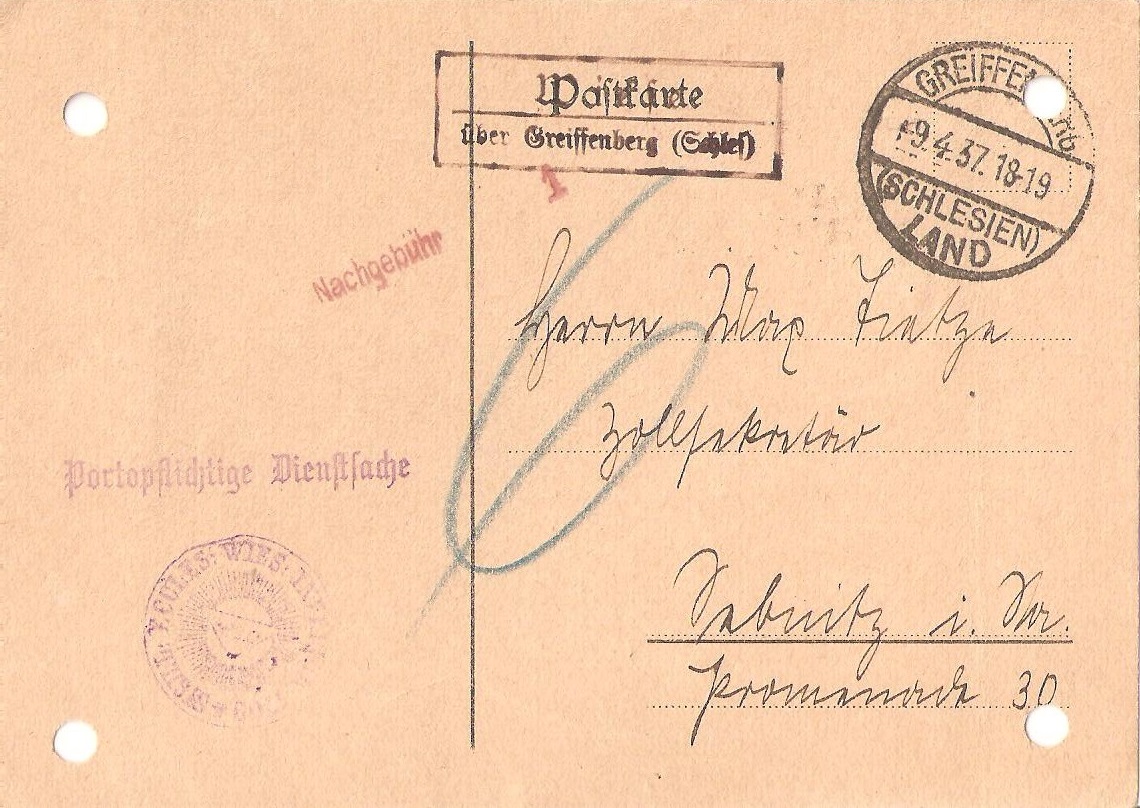 Postkarte
über Greiffenberg (Schles)
GREIFFEN
-9.4.37.18-19
(SCHLESIEN)
LAND
1
Nachgebühr
Herrn Max Tietze
Zollsekretär
Portopflichtige Dienstsache
6
Sebnitz i. Sa.
Promenade 30